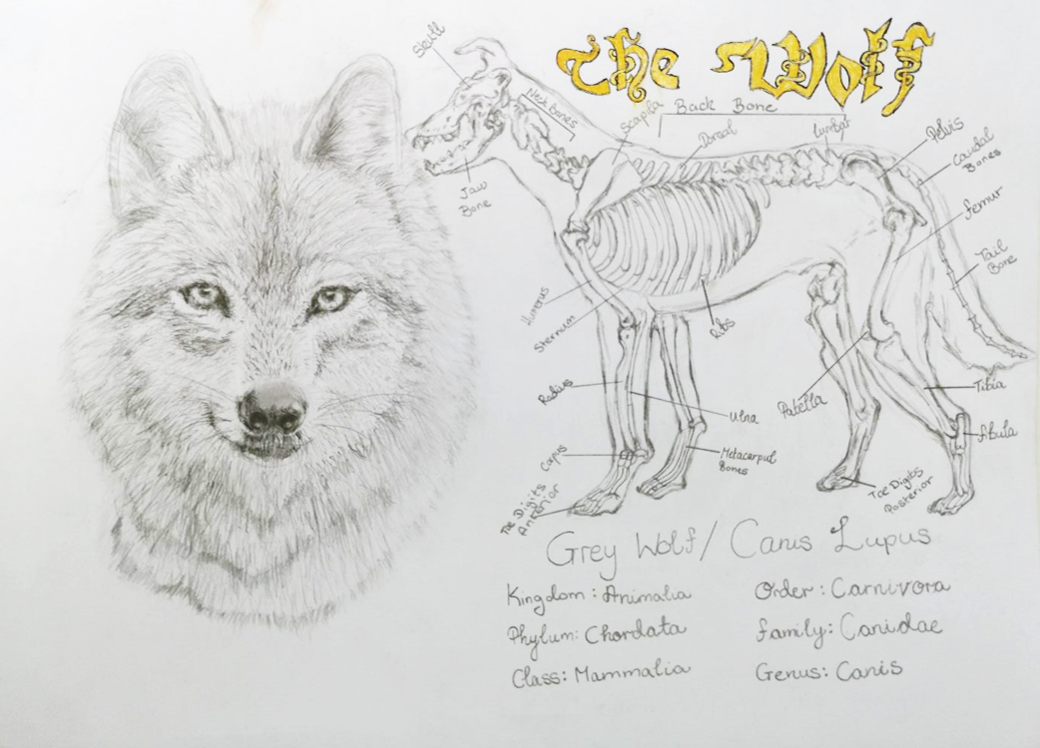 The Wolf
Skull
Neck Bones
Scapula
Back Bone
Dorsal
Lumbar
Pelvis
Caudal
Bones
Femur
Tail
Bone
Jaw
Bone
Humerus
Sternum
Ribs
Radius
Ulna
Patella
Tibia
Fibula
Carpus
Metacarpal
Bones
Toe Digits
Anterior
Toe Digits
Posterior
Grey Wolf / Canis Lupus
Kingdom : Animalia
Order : Carnivora
Phylum: Chordata
Family: Canidae
Class: Mammalia
Genus: Canis